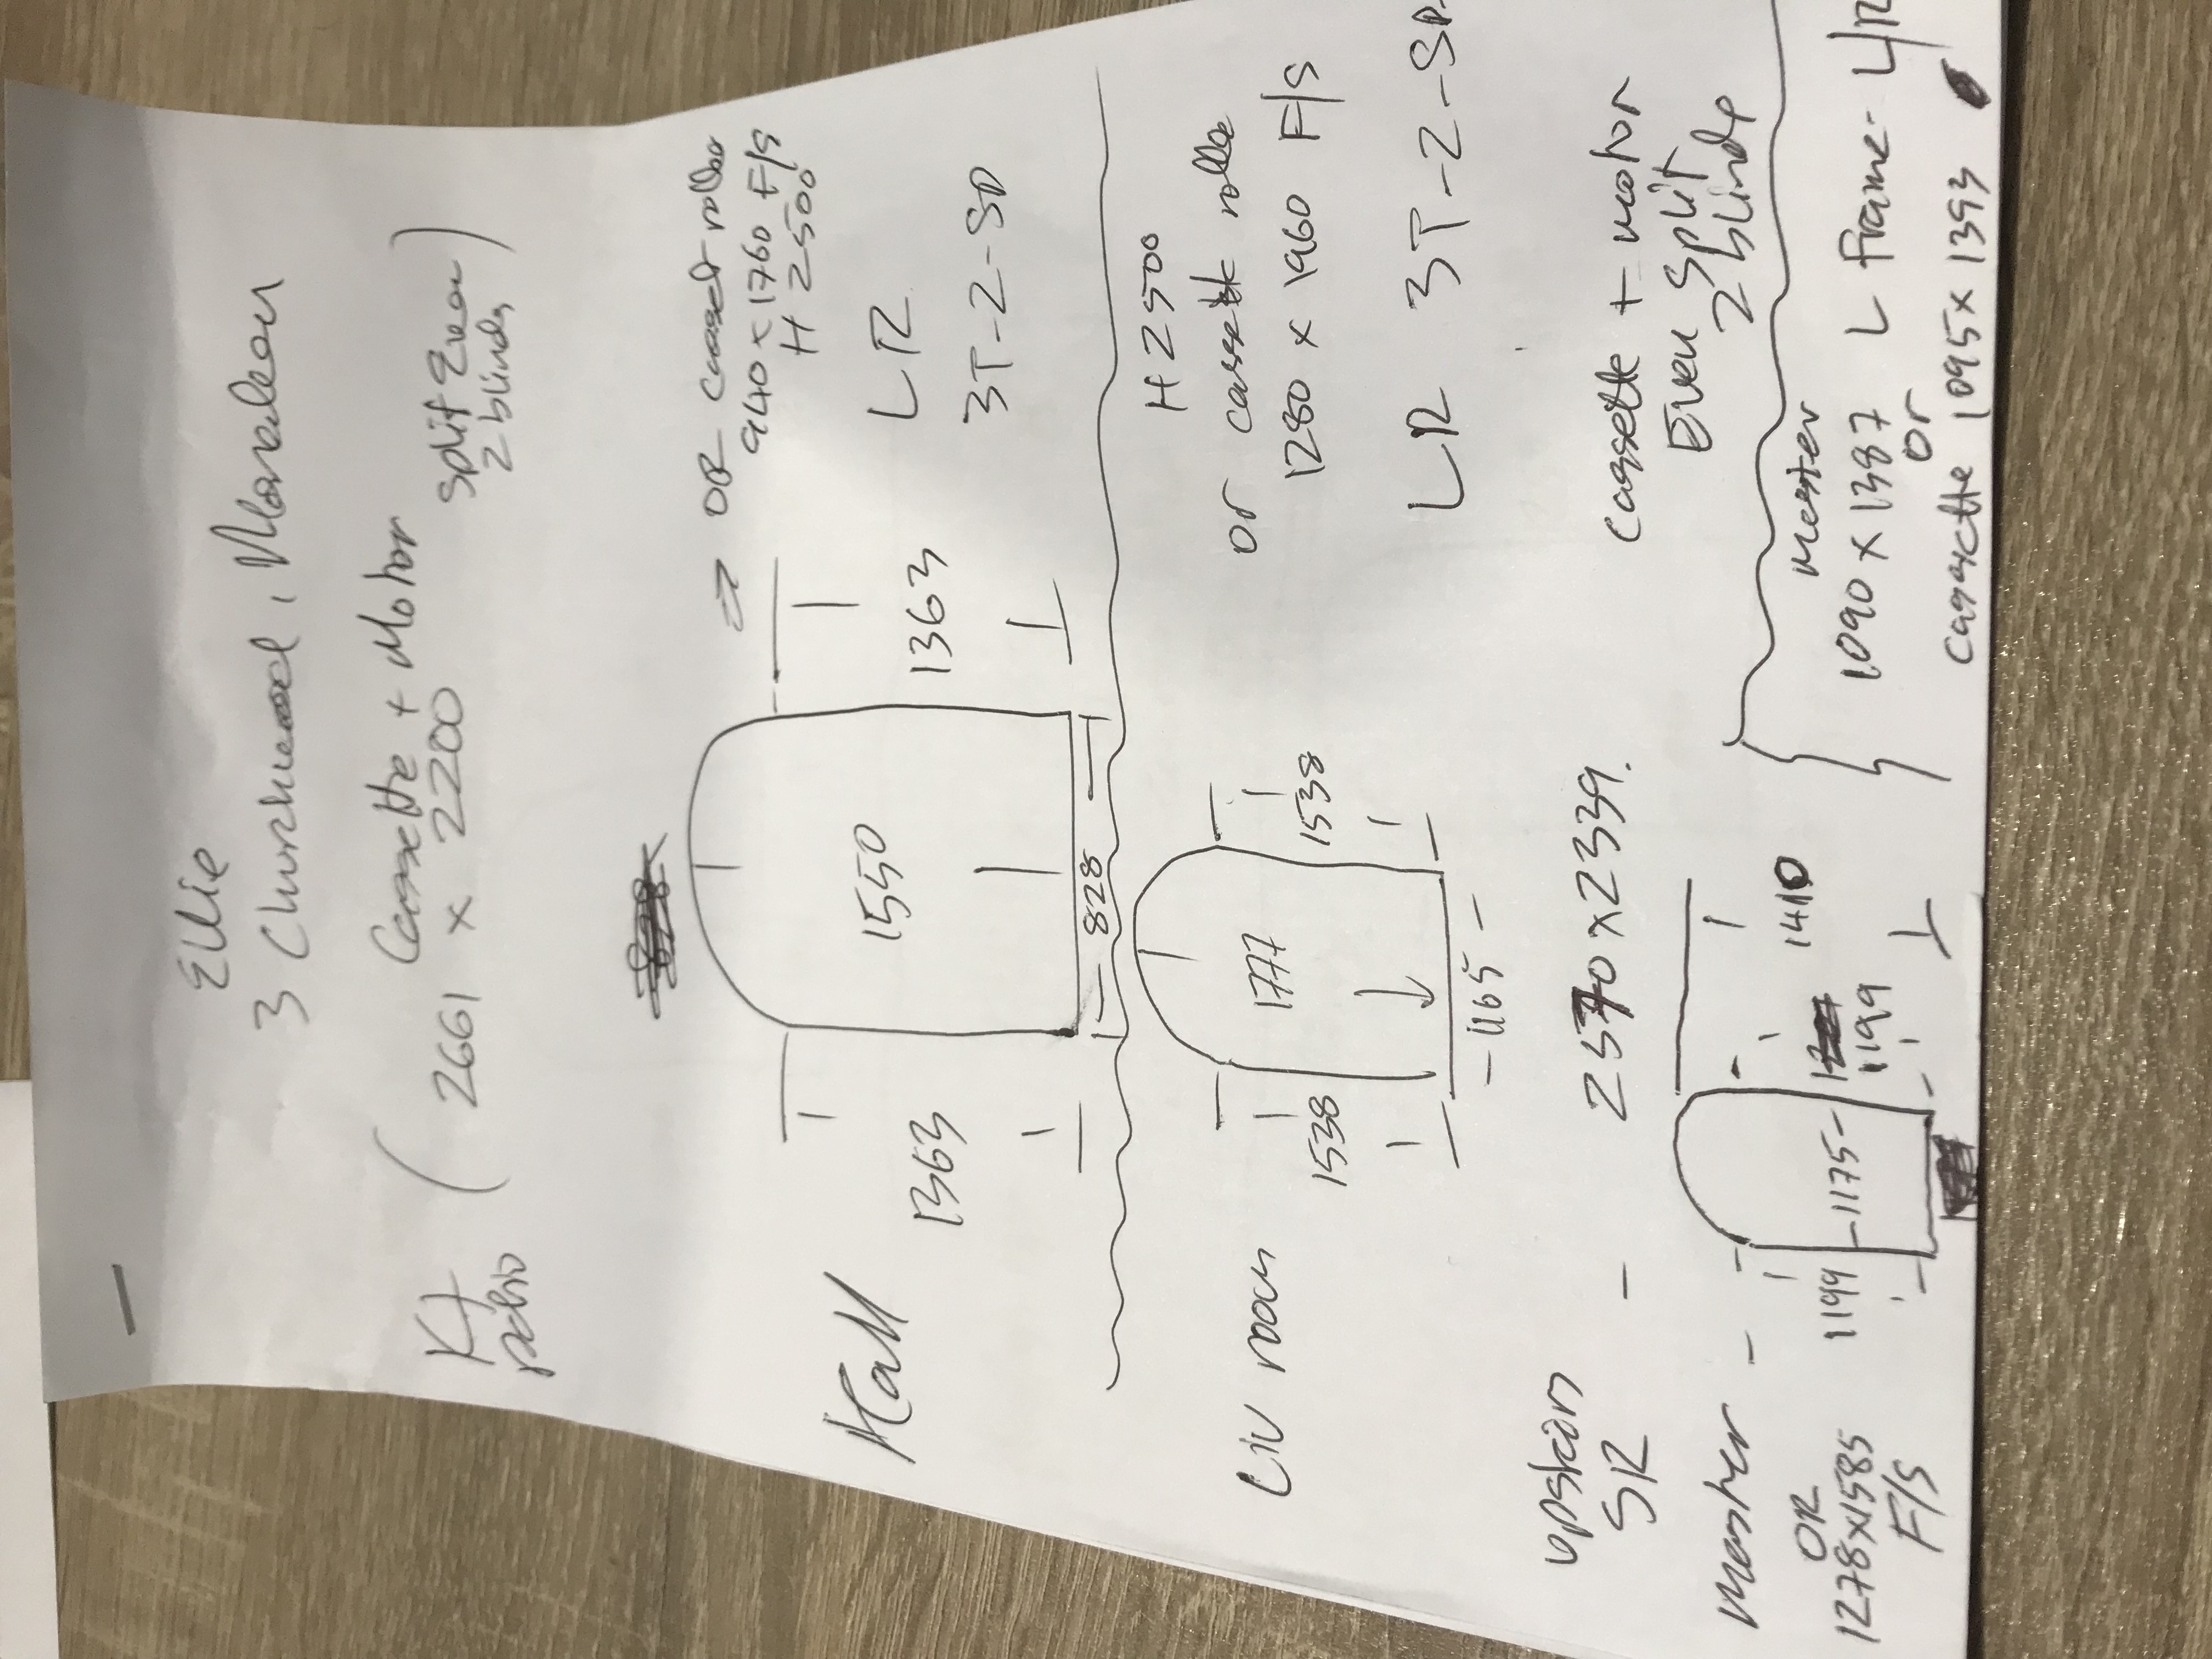 Ellie
3 Churchwood,
Kt patio ( 2661 x 2200 Cassette + Motor Split Even 2 blinds )
Hall
1363
1550
1363
828
=> OR casset roller
940 x 1760 F/S
H 2500
LR
3T-2-SD
Liv room
1538
1777
1538
1165
H 2500
or cassette roller
1280 x 1960 F/S
LR 3T-2-SD
upstairs
SR - 2570 x 2339.
cassette + motor
Even Split
2 blinds
Master -
1410
1199
1175
1199
OR
1278x1585
F/S
Master
1090 x 1387 L Frame - L/R
or
Cassette 1095 x 1393